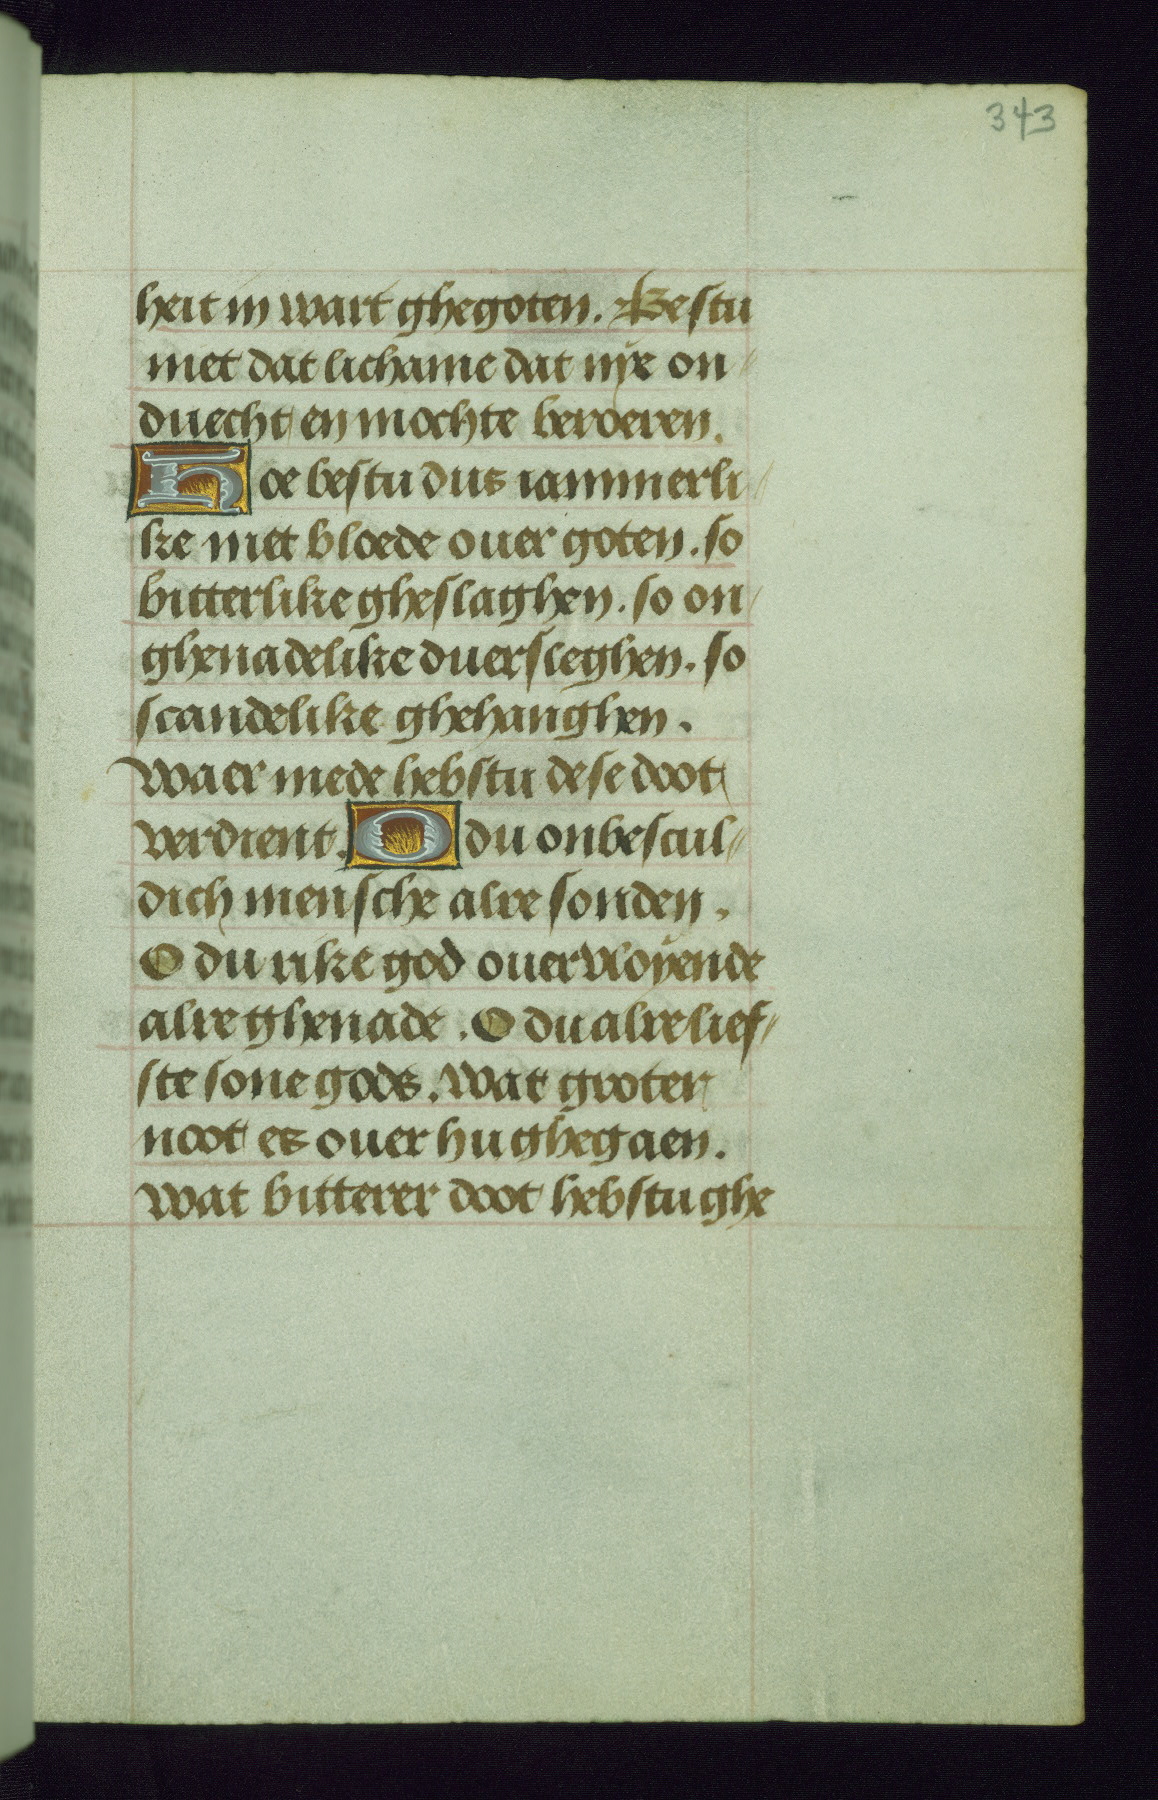 343
heit in wart ghegoten. Bestu
met dat lichame dat nye on
duecht en mochte beroeren.
Hoe bestu dus iammerli
ke met bloede ouer goten. so
bitterlike gheslaghen. so on
ghenadelike duersleghen. so
scandelike ghehanghen.
Waer mede hebstu dese doot
verdient. O du onbescul
dich mensche alre sonden.
O du rike god ouervloyende
alre ghenade. O du alrelief
ste sone gods. Wat groter
noot es ouer hu ghegaen.
Wat bitterer doot hebstu ghe